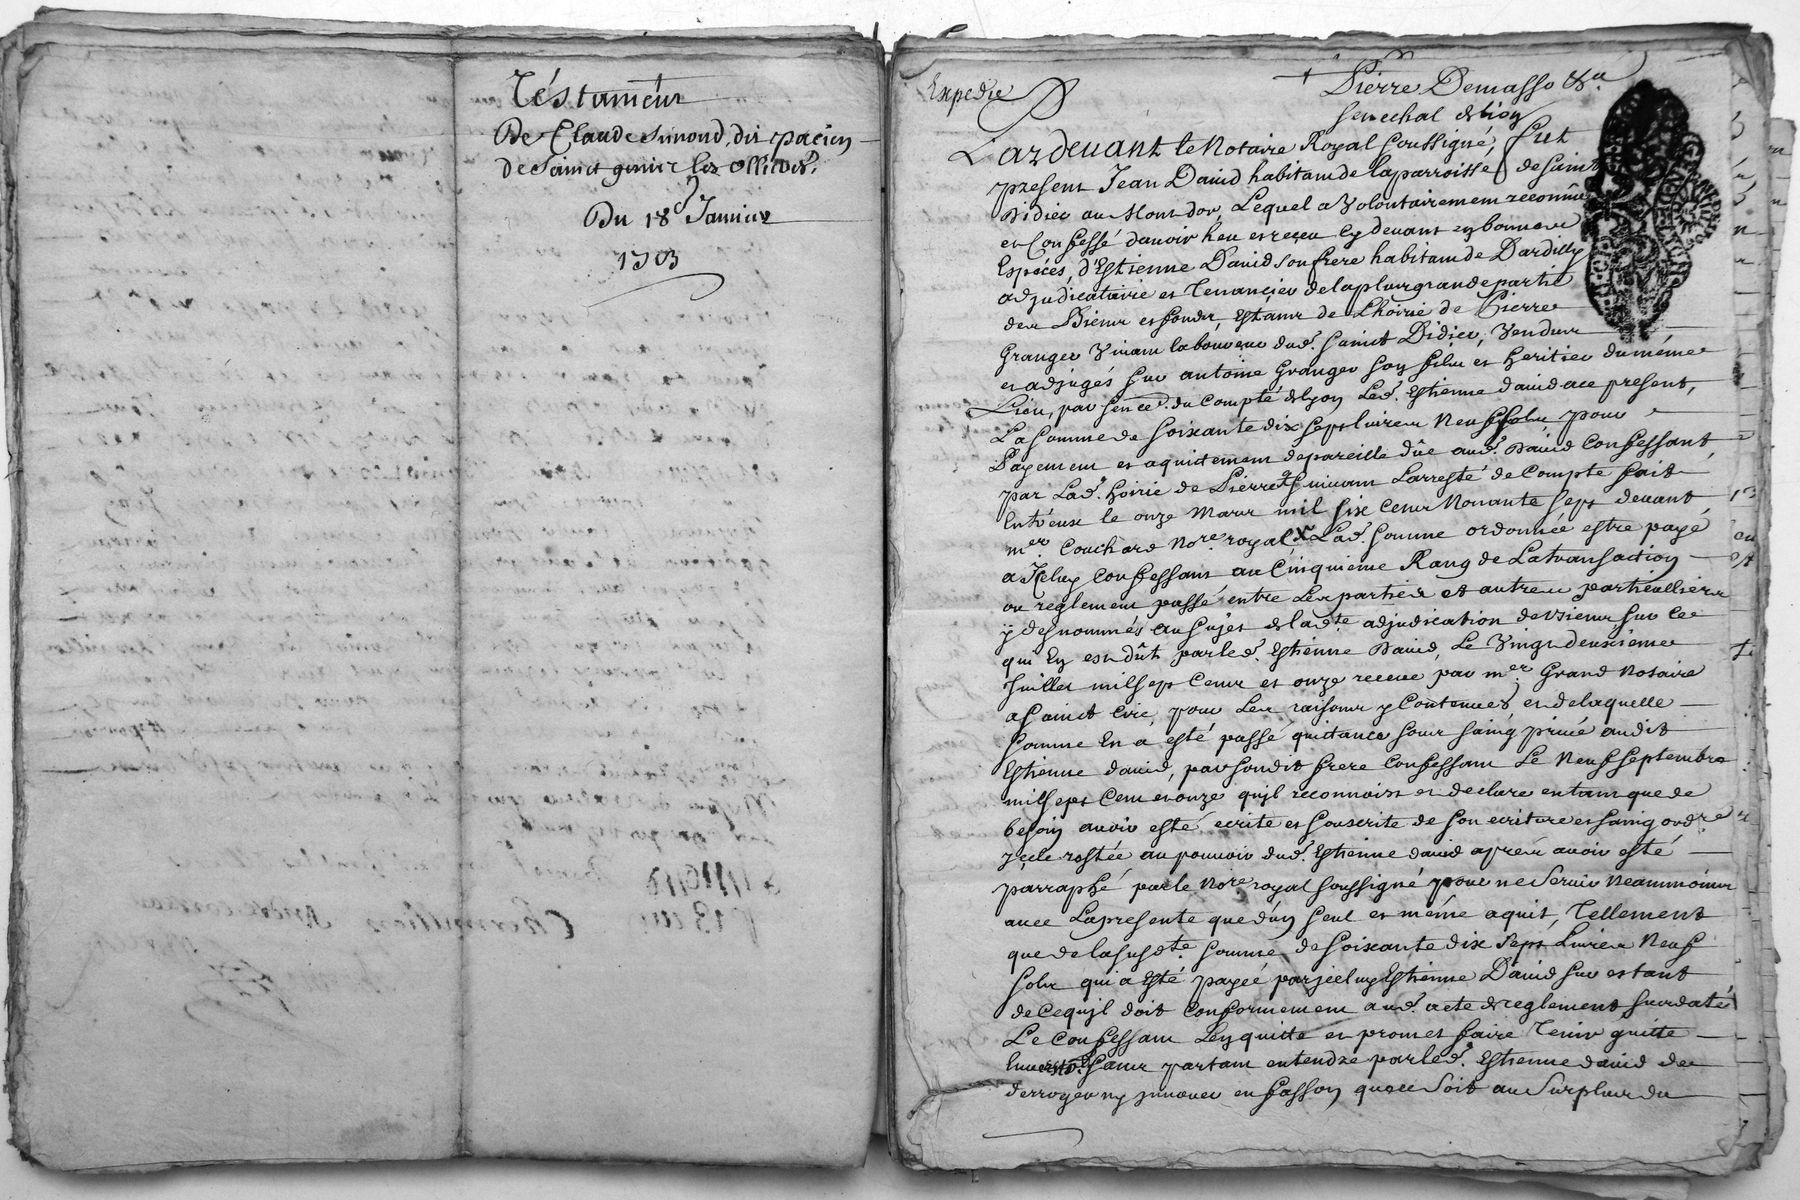 Téstament
De Claude Simond, dit pacien
de Sainct genis les ollieres.
Du 18e Janvier
1703
Expedié
Pierre Demasso &a
senechal de lion
Pardevant le Notaire Royal soussigné, fut
present Jean David habitant de la parroisse de saint
Didier au Mont dor, Lequel a Volontairement reconnu
et Confessé d'avoir heu et receu cy devant en bonnes
Espéces, d'Estienne David son frere habitant de Dardilly
adjudicataire et Tenancier de la plus grande partie
des Biens et fonds, estants de Lhoirie de Pierre
Granger Vivant laboureur dud. Sainct Didier, Vendus
et adjugés sur antoine Granger son fils et heritier du méme
Lieu, par sence. du Compté de Lyon Led. Estienne david ace present,
La somme de soixante dix sept livres Neuf sols pour
Payement et aquittement de pareille dûe aud. David Confessant
par Lad. hoirie de Pierre G suivant Larresté de Compte fait
Entr'eux le onze Mars mil six Cents Nonante sept devant
mer. Couchard Nore. royal, Lad. somme ordonnée estre payé
a Icluy Confessant au Cinquieme Rang de La transaction
ou reglement passé entre Les parties et autres particulliers
ÿ desnommés au sujet de lad.te adjudication de Biens, sur Ce
qui En est Dût par led. Estienne David, Le Vingt deuxieme
Juillet mil sept Cents et onze receue par mer. Grand Nosaire
a Sainct Cire, pour Les raisons y Contenues, et de laquelle
somme En a esté passé quittance sous saing privé audit
Estienne david, par sondit frere Confessant Le Neuf septembre
mil sept Cents et onze quil reconnoist et declare en tant que de
besoin avoir esté ecrite et souscrite de son ecriture et saing ord.re
Jcelle restée au pouvoir dud. Estienne david apres avoir esté
parraphé par le Nore royal soussigné pour ne servir Neammoins
avec La presente que d'un seul et même aquit, Tellement
que de la susd.te somme de soixante dix Sept Livres Neuf
sols qui a Esté payée par jceluy Estienne David sur estant
de Cequil doit Conformement aud. acte de reglement susdaté
Le Confessant Len quitte et promet faire Tenir quitte
Envers tous sans partant entendre par led. Estienne david de
derroger ny jnnover en fasson quece soit au surplus du